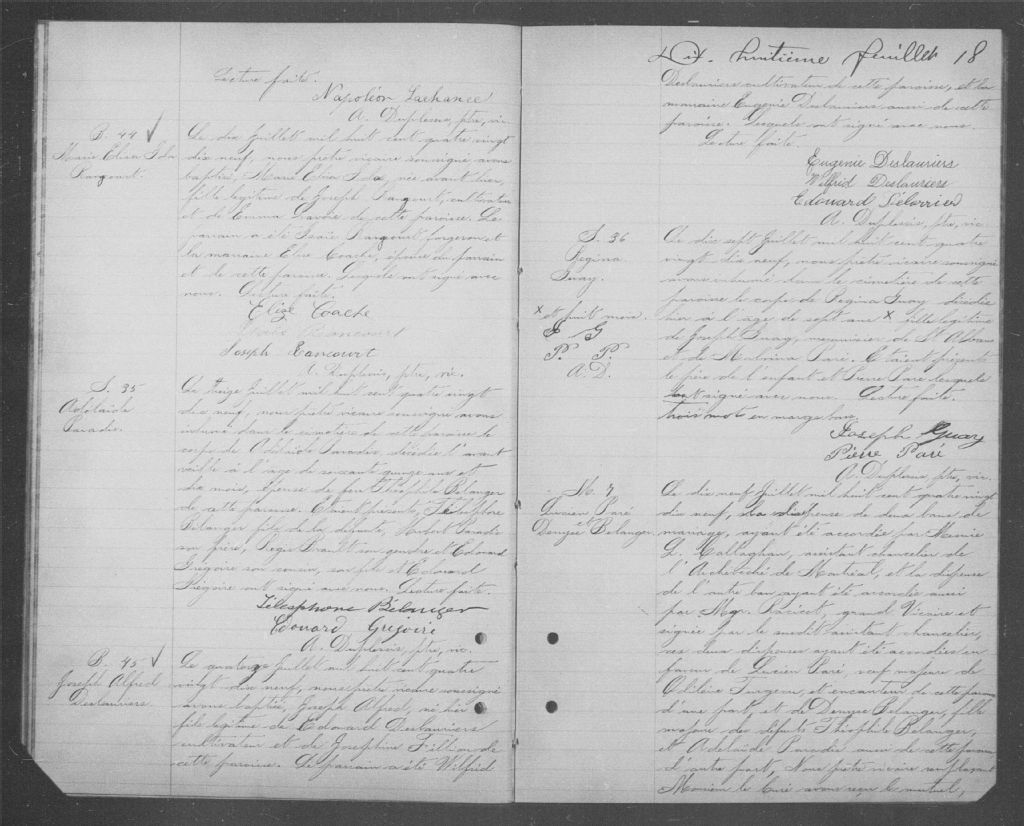 Lecture faite.
Napoléon Lachance
A. Duplessis, ptre, vic.
B. 44
Marie Eliza
Rancourt.
Le dix Juillet mil huit cent quatre vingt
dix neuf, nous prêtre vicaire soussigné avons
baptisé, Marie Eliza née avant hier,
fille légitime de Joseph Rancourt, cultivateur
et de Emma Lavoie de cette paroisse. Le
parrain a été Isaïe Rancourt forgeron et
la marraine Elise Coache, épouse du parrain
et de cette paroisse. Lesquels ont signé avec
nous. Lecture faite.
Elise Coache
Rancourt
Joseph Rancourt
A. Duplessis, ptre, vic.
S. 35
Adélaïde
Paradis.
Le treize Juillet mil huit cent quatre vingt
dix neuf, nous prêtre vicaire soussigné avons
inhumé dans le cimetière de cette paroisse le
corps de Adélaïde Paradis, décédée l'avant
veille à l'âge de soixante quinze ans et
dix mois, épouse de feu Théophile Bélanger
de cette paroisse. Etaient présents, Télesphore
Bélanger fils de la défunte, Hubert Paradis
son frère, Régis Brault son gendre et Edouard
Grégoire son cousin, son fils et Edouard
Grégoire ont signé avec nous. Lecture faite.
Télesphore Bélanger
Edouard Grégoire
A. Duplessis, ptre, vic.
B. 45
Joseph Alfred
Deslauriers
Le quatorze Juillet mil huit cent quatre
vingt dix neuf, nous prêtre vicaire soussigné
avons baptisé, Joseph Alfred, né hier
fils légitime de Edouard Deslauriers
cultivateur et de Josephine Fillion de
cette paroisse. Le parrain a été Wilfrid
Dix huitième feuillet 18
Deslauriers cultivateur de cette paroisse, et la
marraine Eugenie Deslauriers aussi de cette
paroisse. Lesquels ont signé avec nous.
Lecture faite.
Eugenie Deslauriers
Wilfrid Deslauriers
Edouard
A. Duplessis, ptre, vic.
S. 36
Regina
Guay.
Le dix sept Juillet mil huit cent quatre
vingt dix neuf, nous prêtre vicaire soussigné
avons inhumé dans le cimetière de cette
paroisse le corps de Regina Guay décédée
hier à l'âge de sept ans X fille légitime
X et huit mois.
J G
P. P.
A. D.
de Joseph Guay, menuisier de St Alban
et de Malvina Paré. Etaient présents
le père de l'enfant et Pierre Paré lesquels
ont signé avec nous. Lecture faite.
trois mots en marge bons.
Joseph Guay
Pierre Paré
A. Duplessis ptre, vic.
M. 7
Lucien Paré
et
Denyse Belanger.
Le dix neuf Juillet mil huit cent quatre vingt
dix neuf, la dispense de deux bans de
mariage, ayant été accordée par Messire
L. Callaghan, assistant chancelier de
l'Archevêché de Montréal, et la dispense
de l'autre ban ayant été accordée aussi
par Mgr. Racicot, grand Vicaire et
signée par le susdit assistant chancelier,
ces deux dispenses ayant été accordées en
faveur de Lucien Paré, veuf majeur de
Odilëie Turgeon, et encanteur de cette paroisse
d'une part, et de Denyse Belanger, fille
majeure des défunts Théophile Belanger,
et Adelaïde Paradis aussi de cette paroisse
d'autre part, Nous prêtre vicaire remplaçant
Monsieur le Curé avons reçu le mutuel,